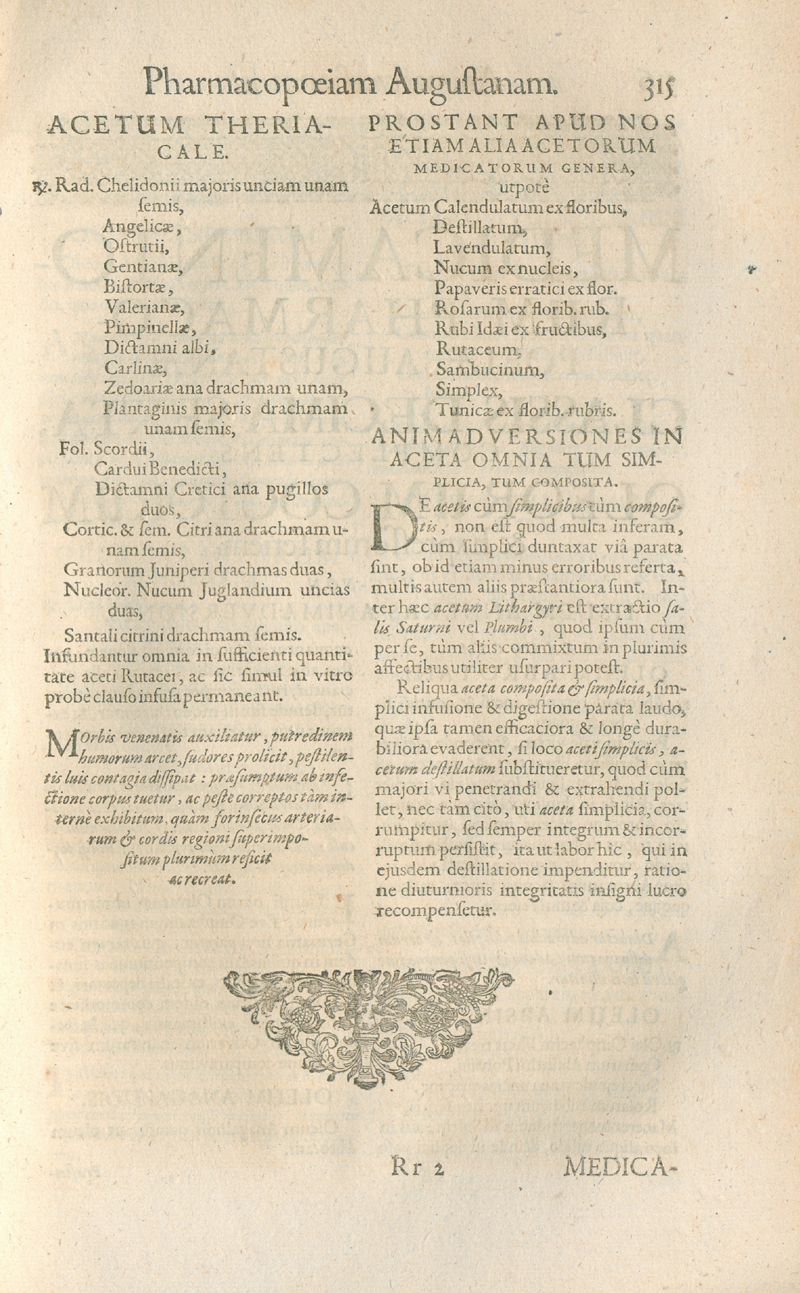 Pharmacopœiam Auguſtanam. 315
ACETUM THERIA-
CALE.
℞. Rad. Chelidonii majoris unciam unam
ſemis,
Angelicæ,
Oſtrutii,
Gentianæ,
Biſtortæ,
Valerianæ,
Pimpinellæ,
Dictamni albi,
Carlinæ,
Zedoariæ ana drachmam unam,
Plantaginis majoris drachmam
unam ſemis,
Fol. Scordii,
Cardui Benedicti,
Dictamni Cretici ana pugillos
duos,
Cortic. & ſem. Citri ana drachmam u-
nam ſemis,
Granorum Juniperi drachmas duas,
Nucleor. Nucum Juglandium uncias
duas,
Santali citrini drachmam ſemis.
Infundantur omnia in ſufficienti quanti-
tate aceti Rutacei, ac ſic ſimul in vitro
probè clauſo infuſa permaneant.
MOrbis venenatis auxiliatur, putredinem
humorum arcet, ſudores prolicit, peſtilen-
tis luis contagia diſſipat : præſumptum ab infe-
ctione corpus tuetur, ac peſte correptos tàm in-
ternè exhibitum, quàm forinſecus arteria-
rum & cordis regioni ſuperimpo-
ſitum plurimùm reficit
ac recreat.
PROSTANT APUD NOS
ETIAM ALIA ACETORUM
MEDICATORUM GENERA,
utpotè
Acetum Calendulatum ex floribus,
Deſtillatum,
Lavendulatum,
Nucum ex nucleis,
Papaveris erratici ex flor.
Roſarum ex florib. rub.
Rubi Idæi ex fructibus,
Rutaceum,
Sambucinum,
Simplex,
Tunicæ ex florib. rubris.
ANIMADVERSIONES IN
ACETA OMNIA TUM SIM-
PLICIA, TUM COMPOSITA.
DE acetis cùm ſimplicibus tùm compoſi-
tis, non eſt quod multa inferam,
cùm ſimplici duntaxat viâ parata
ſint, ob id etiam minus erroribus referta,
multis autem aliis præſtantiora ſunt. In-
ter hæc acetum Lithargyri eſt extractio ſa-
lis Saturni vel Plumbi, quod ipſum cùm
per ſe, tùm aliis commixtum in plurimis
affectibus utiliter uſurpari poteſt.
Reliqua aceta compoſita & ſimplicia, ſim-
plici infuſione & digeſtione parata laudo,
quæ ipſa tamen efficaciora & longè dura-
biliora evaderent, ſi loco aceti ſimplicis, a-
cetum deſtillatum ſubſtitueretur, quod cùm
majori vi penetrandi & extrahendi pol-
let, nec tàm citò, uti aceta ſimplicia, cor-
rumpitur, ſed ſemper integrum & incor-
ruptum perſiſtit, ita ut labor hic, qui in
ejusdem deſtillatione impenditur, ratio-
ne diuturnioris integritatis inſigni lucro
recompenſetur.
Rr 2 MEDICA-